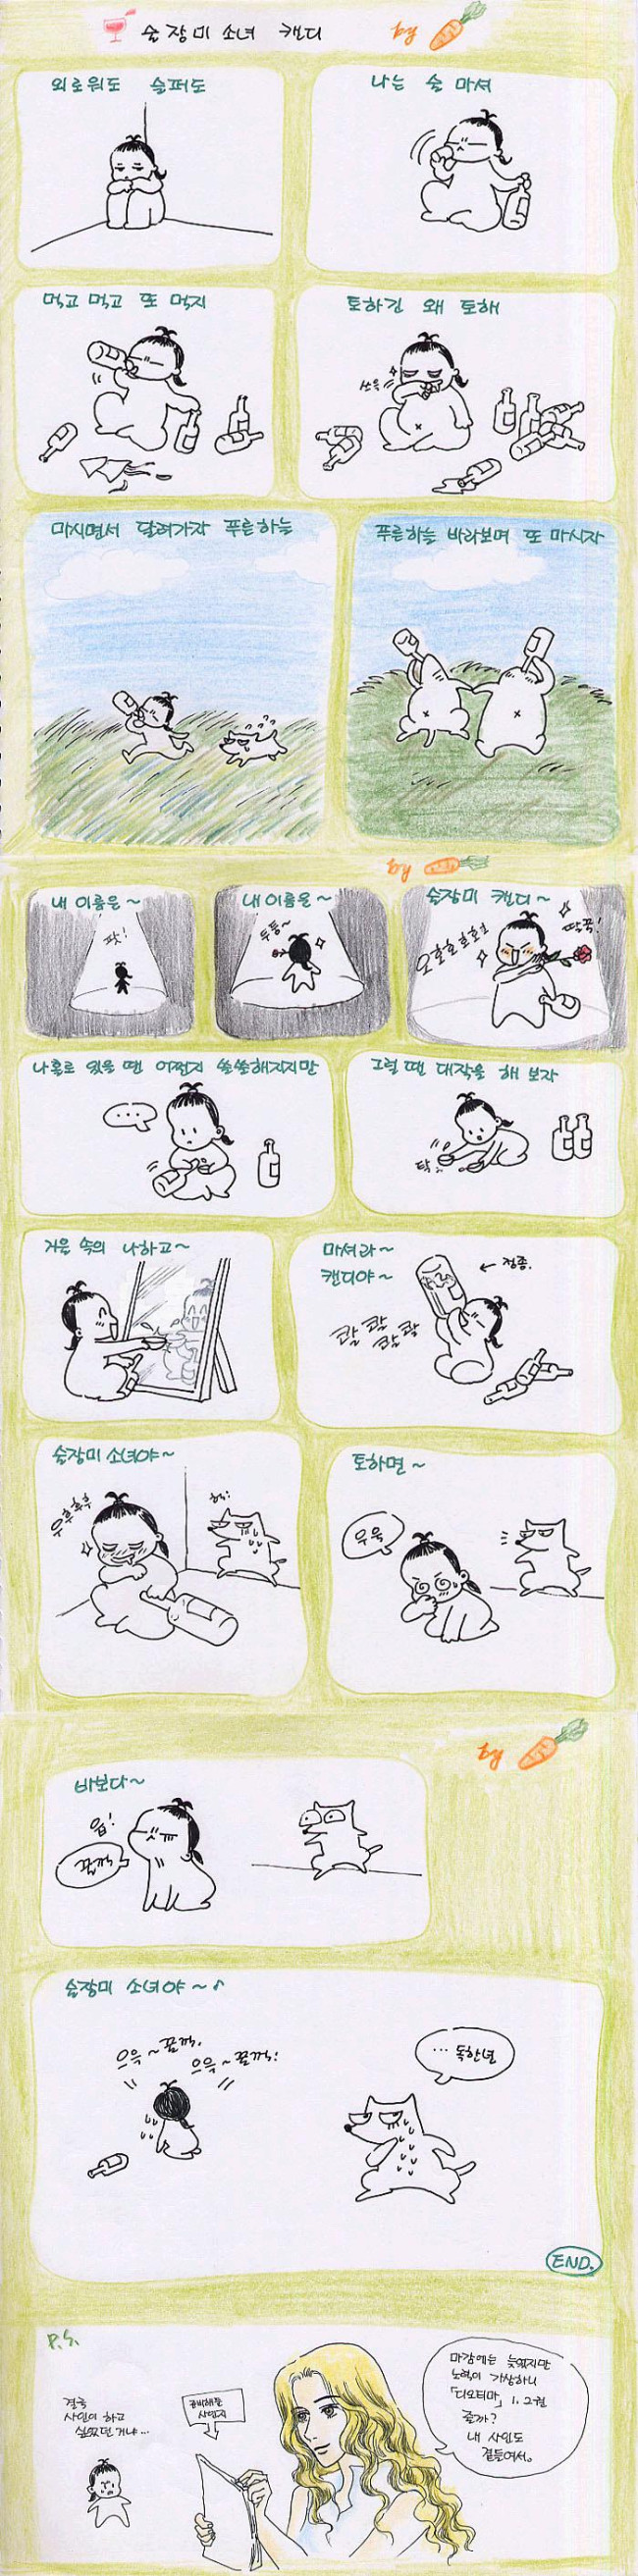 술장미 소녀 캔디 by
외로워도 슬퍼도
나는 술 마셔
먹고 먹고 또 먹지
토하긴 왜 토해
쓰윽
마시면서 달려가자 푸른하늘
푸른하늘 바라보며 또 마시자
by
내 이름은~
팟!
내 이름은~
두둥~
술장미 캔디~
오호호호호
딸꾹!
나홀로 있을 땐 어쩐지 쓸쓸해지지만
...
그럴 땐 대작을 해 보자
탁
거울 속의 나하고~
마셔라~
캔디야~
← 정종.
콸콸
콸콸
술장미 소녀야~
우후후후
헉!
토하면~
우욱
by
바보다~
읍!
꿀꺽
술장미 소녀야~♪
으윽~꿀꺽.
으윽~꿀꺽!
... 독한년
END.
P.S.
결국
사인이 하고
싶었던 거냐...
준비해둔
사인지
마감에는 늦었지만
노력이 가상하니
「디오티마」 1. 2권
줄까?
내 사인도
곁들여서.